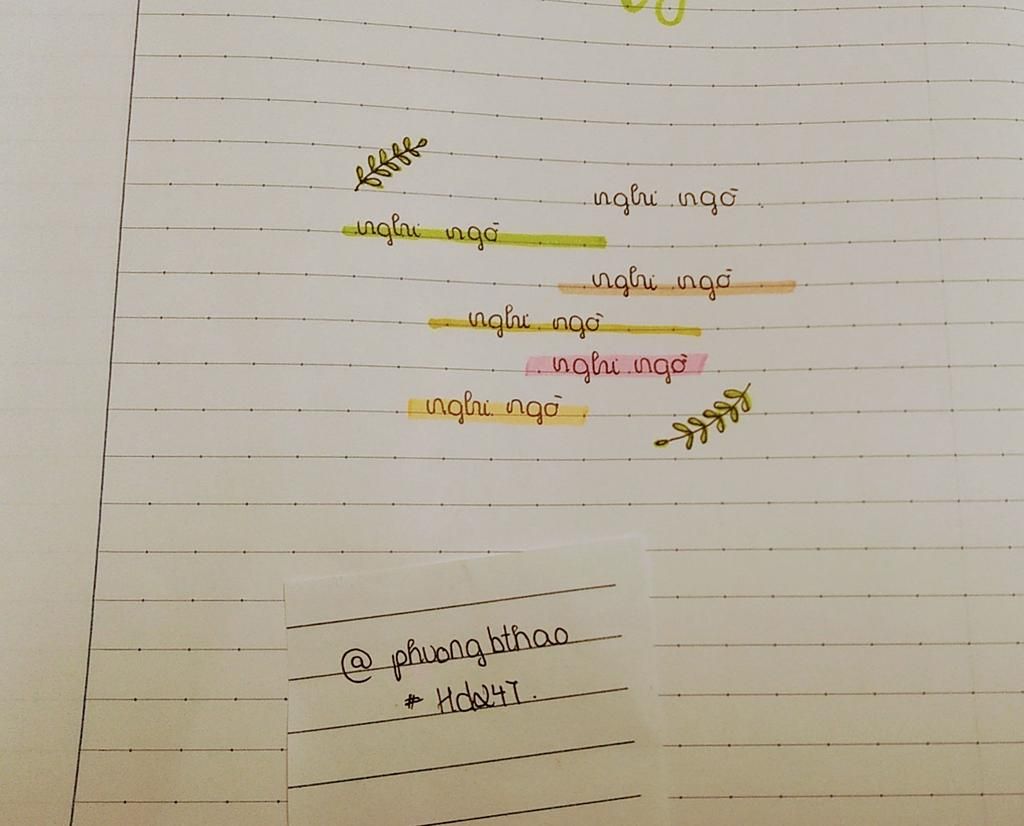 nghi ngờ
nghi ngờ
nghi ngờ
nghi ngờ
nghi ngờ
nghi ngờ
@phuongbthao
#Hds24T.